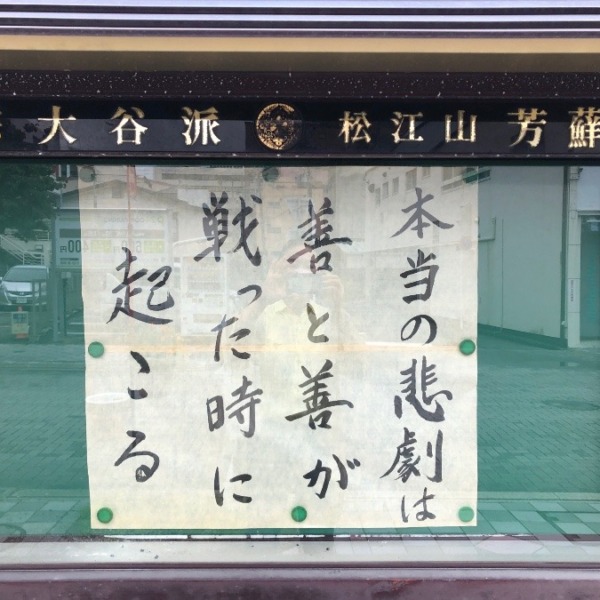 大谷派 松江山 芳蘇
本当の悲劇は
善と善が
戦った時に
起こる